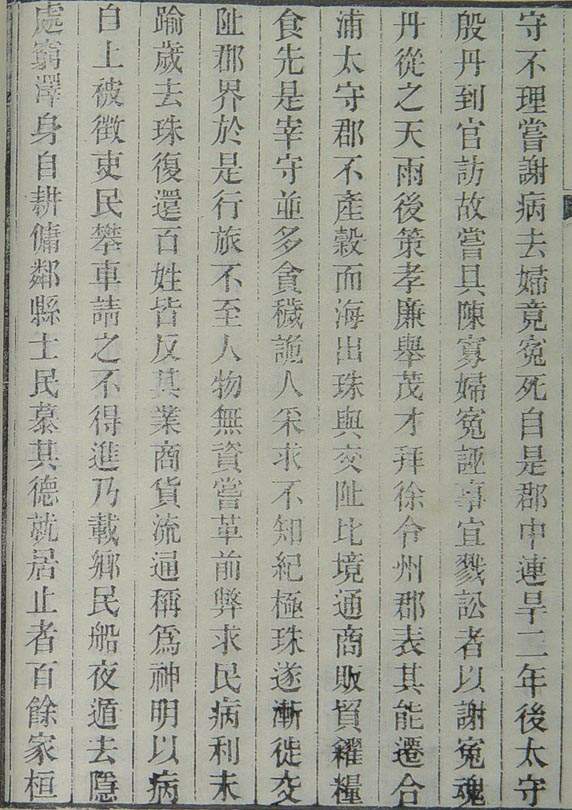 守不理嘗謝病去婦竟冤死自是郡中連旱二年後太守
殷丹到官訪故嘗具陳寡婦冤誣事宜戮訟者以謝冤魂
丹從之天雨後策孝廉舉茂才拜徐令州郡表其能遷合
浦太守郡不產穀而海出珠與交阯比境通商販貿糴糧
食先是宰守並多貪穢詭人采求不知紀極珠遂漸徙交
阯郡界於是行旅不至人物無資嘗革前弊求民病利未
踰歲去珠復還百姓皆反其業商貨流通稱爲神明以病
自上被徵吏民攀車請之不得進乃載鄉民船夜遁去隱
處窮澤身自耕傭鄰縣士民慕其德就居止者百餘家桓